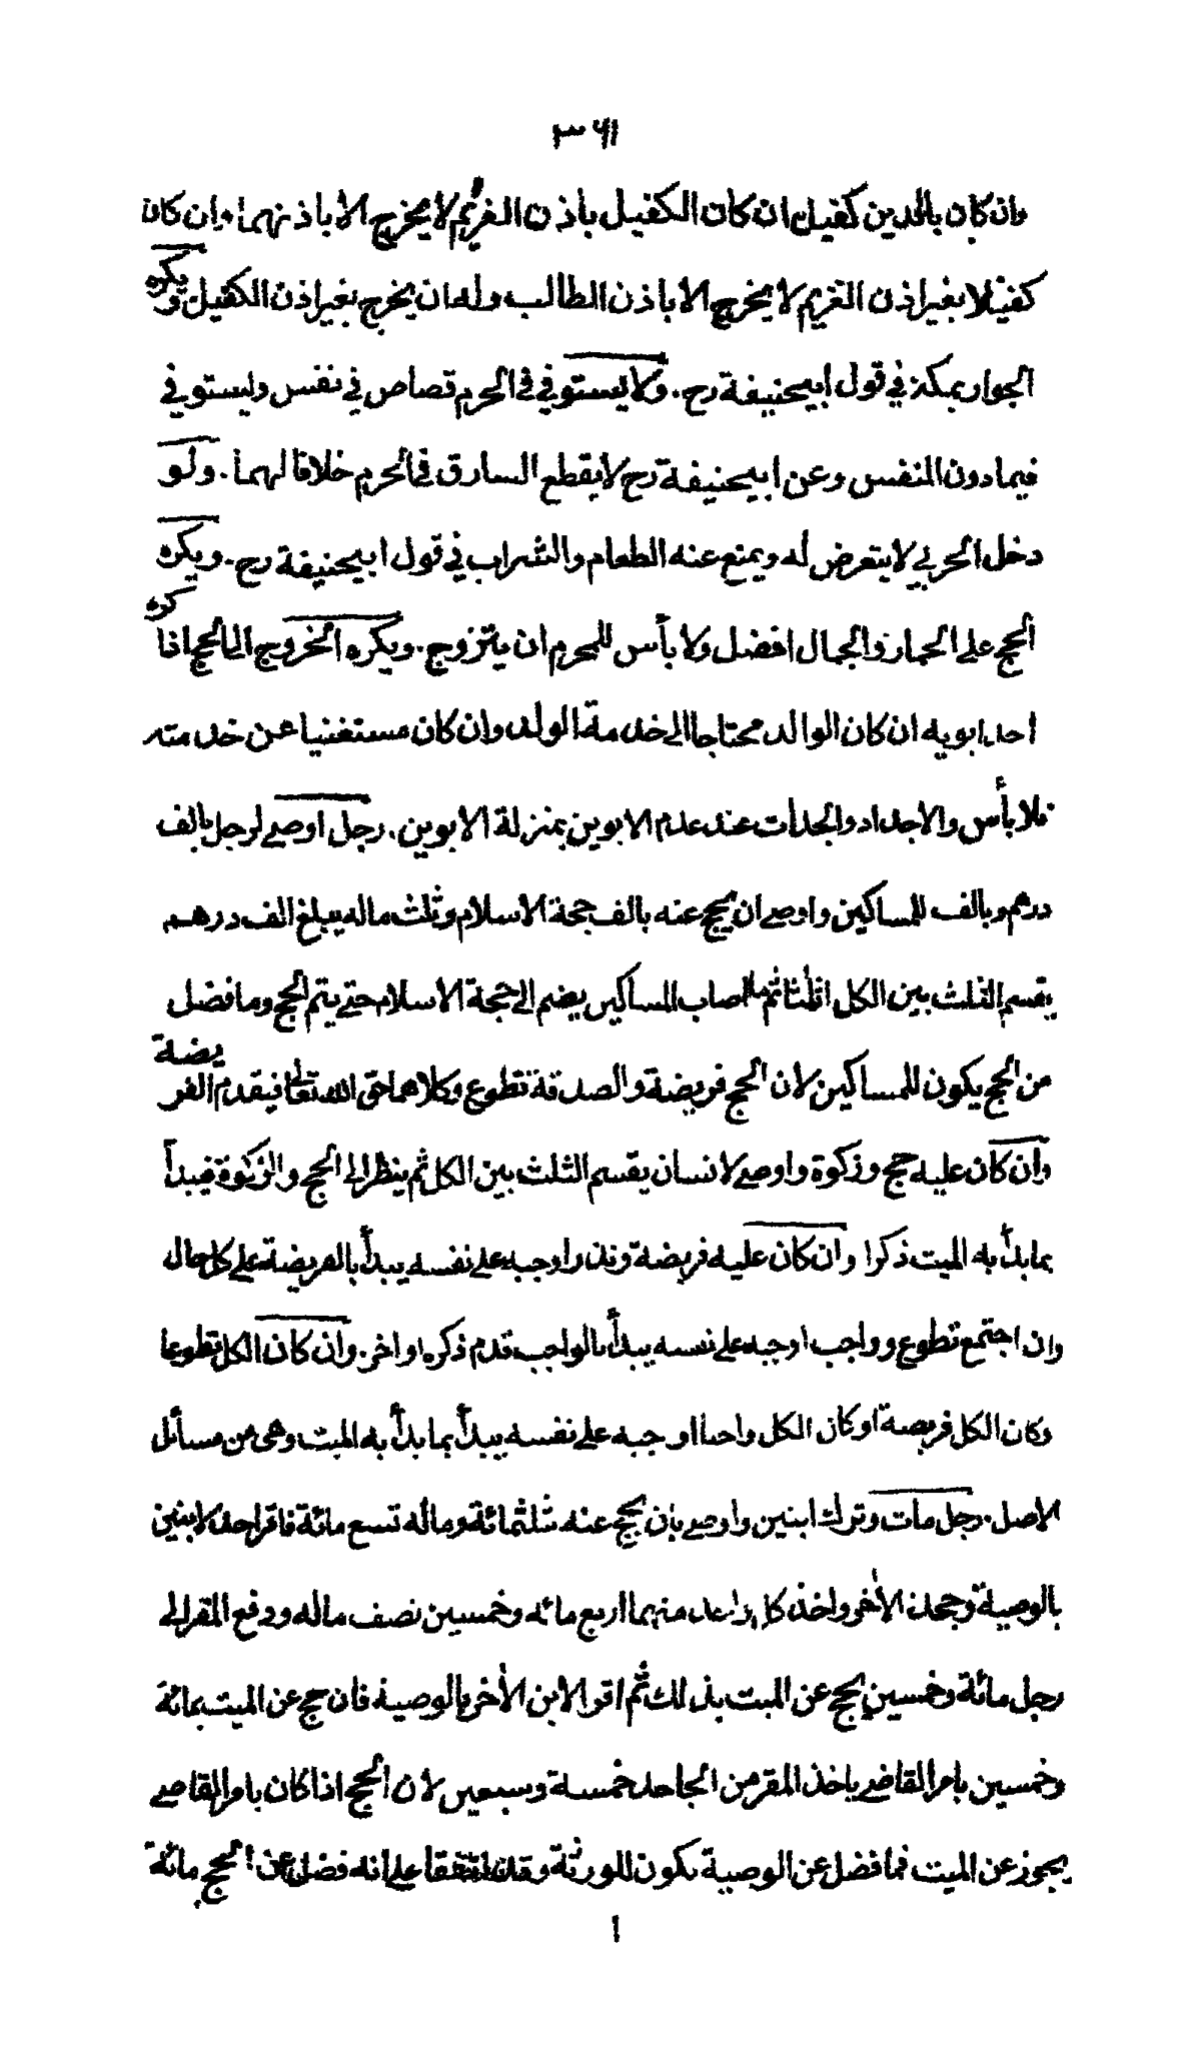 ٣٦١
وان كان بالدين كفيل ان كان الكفيل باذن الغريم لا يخرج الا باذنهما وان كان
كفيلا بغير اذن الغريم لا يخرج الا باذن الطالب وله ان يخرج بغير اذن الكفيل ويكره
الجوار بمكة في قول ابيحنيفة رح . ولا يستوفي في الحرم قصاص في نفس ويستوفي
فيما دون النفس وعن ابيحنيفة رح لا يقطع السارق في الحرم خلافا لهما . ولو
دخل الحربي لا يتعرض له ويمنع عنه الطعام والشراب في قول ابيحنيفة رح . ويكره
الحج على الحمار والجمال افضل ولا بأس للمحرم ان يتزوج . ويكره الخروج الى الحج اذا كره
احد ابويه ان كان الوالد محتاجا الى خدمة الولد وان كان مستغنيا عن خدمته
فلا بأس والاجداد والجدات عند عدم الابوين بمنزلة الابوين . رجل اوصى لرجل بالف
درهم وبالف للمساكين واوصى ان يحج عنه بالف حجة الاسلام وثلث ماله يبلغ الف درهم
يقسم الثلث بين الكل اثلاثا ثم ما اصاب المساكين يضم الى حجة الاسلام حتى يتم الحج وما فضل
من الحج يكون للمساكين لان الحج فريضة والصدقة تطوع وكلاهما حق الله تعالى فيقدم الفريضة
وان كان عليه حج وزكوة واوصى لانسان يقسم الثلث بين الكل ثم ينظر الى الحج والزكوة فيبدأ
بما بدأ به الميت ذكرا وان كان عليه فريضة ونذر اوجبه على نفسه يبدأ بالفريضة على كل حال
وان اجتمع تطوع وواجب اوجبه على نفسه يبدأ بالواجب قدم ذكره او اخر . وان كان الكل تطوعا
وكان الكل فريضة او كان الكل واحدا اوجبه على نفسه يبدأ بما بدأ به الميت وهى من مسائل
الاصل . رجل مات وترك ابنين واوصى بان يحج عنه بثلثمائة وماله تسع مائة فاقر احد الابنين
بالوصية وجحد الأخر واخذ كل واحد منهما اربع مائه وخمسين نصف ماله ودفع المقر الى
رجل مائة وخمسين يحج عن الميت بذلك ثم اقر الابن الأخر بالوصية فان حج عن الميت بمائة
وخمسين بامر القاضي ياخذ المقر من الجاحد خمسة وسبعين لان الحج اذا كان بامر القاضى
يجوز عن الميت فما فضل عن الوصية يكون للورثة وقد اتفقا على انه فضل عن الحج مائة
ا